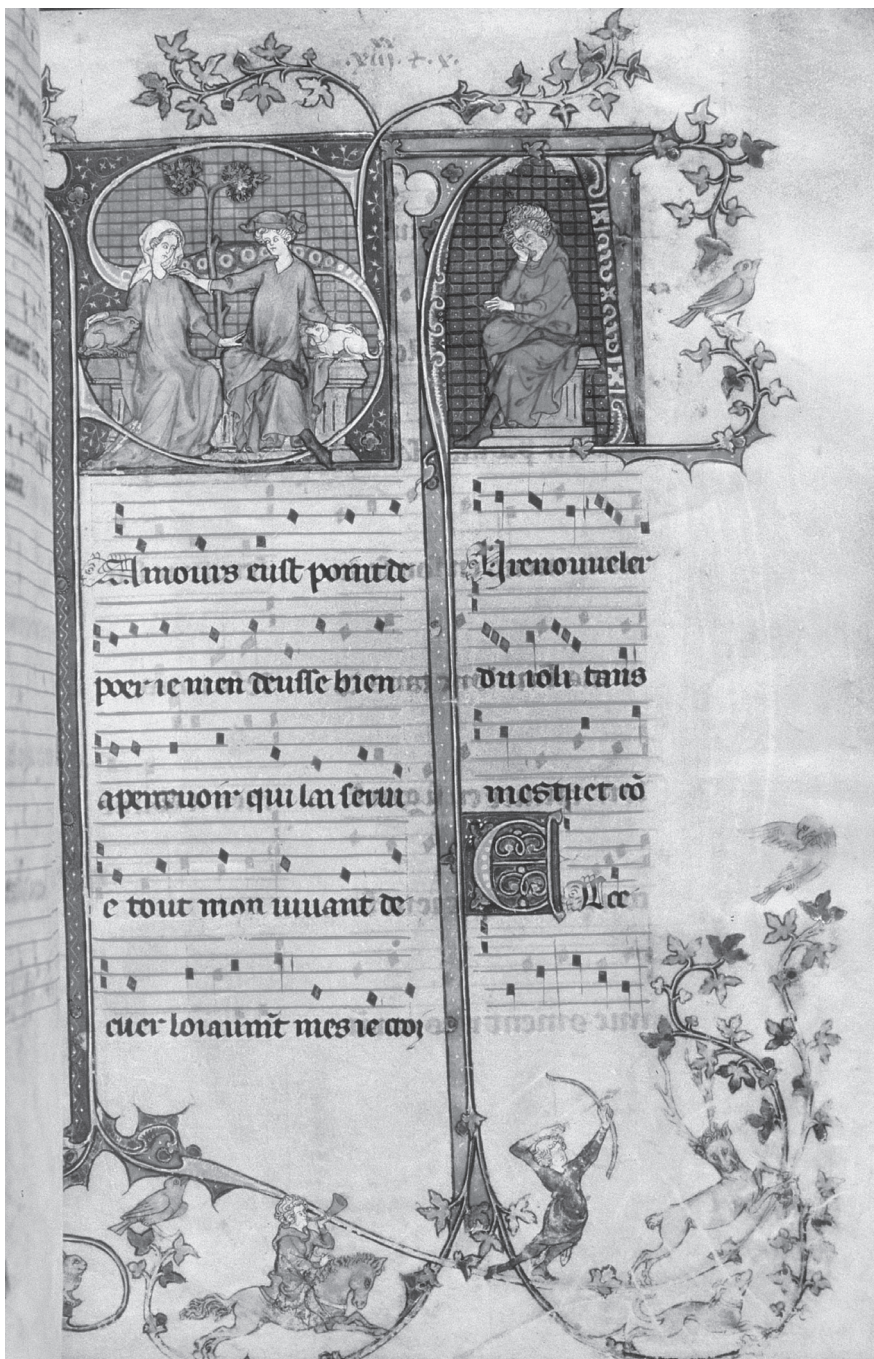 Amours eust point de
poer ie men deusse bien
aperceuoir qui lai serui
e tout mon uiuant de
cuer loiaumt mes ie croi
renouueler
du ioli tans
mestuet cō
E Lce